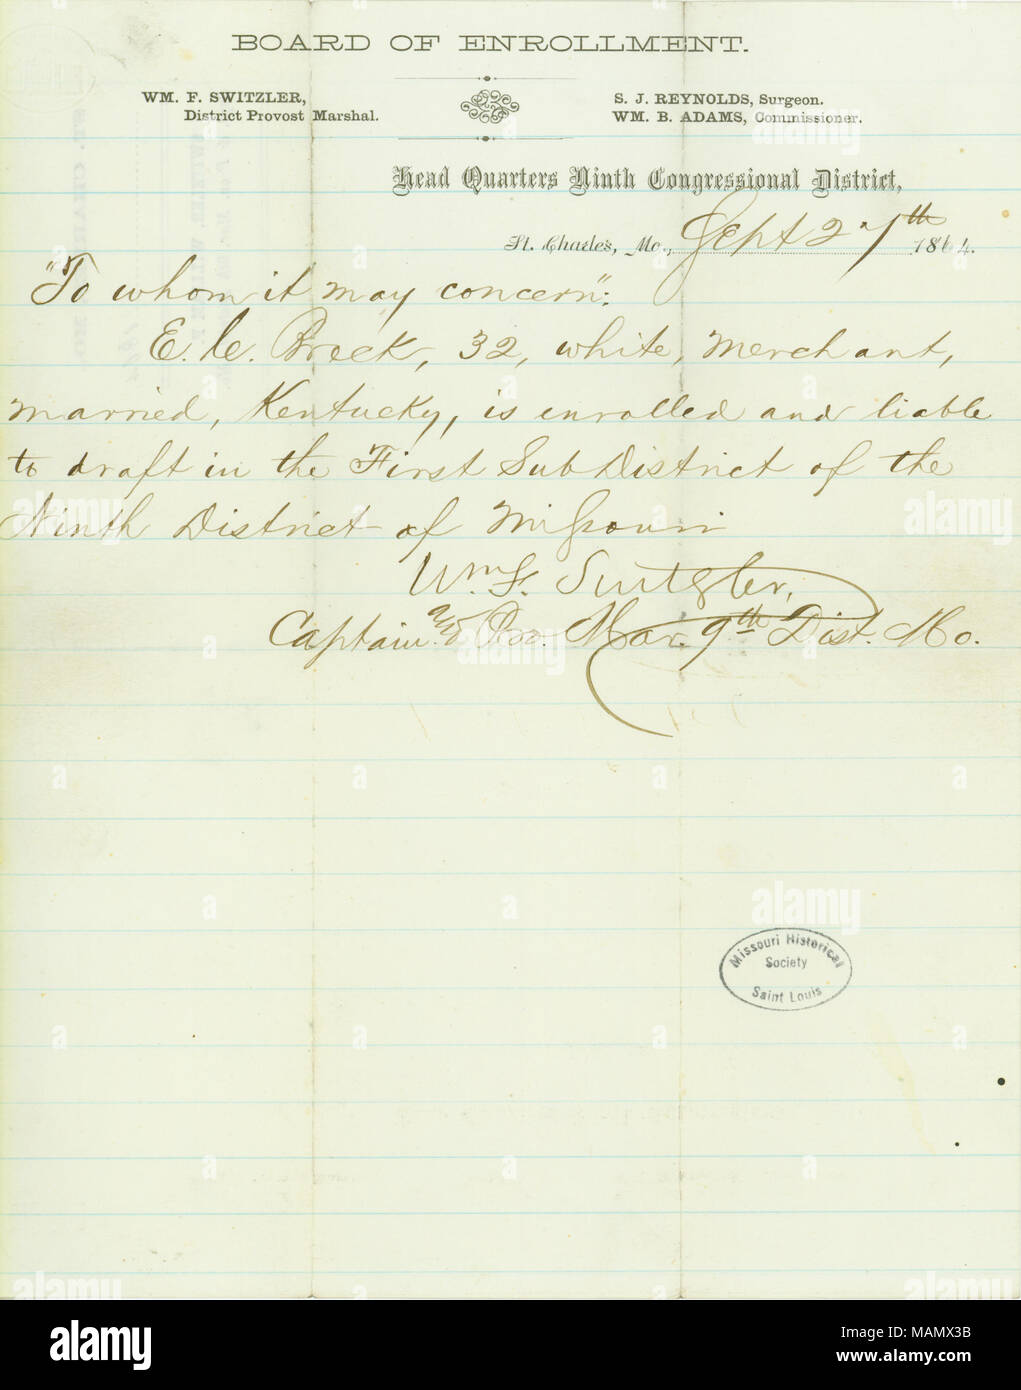 BOARD OF ENROLLMENT.
WM. F. SWITZLER,
District Provost Marshal.
S. J. REYNOLDS, Surgeon.
WM. B. ADAMS, Commissioner.
Head Quarters Ninth Congressional District,
St. Charles, Mo., Sept 27th 1864.
"To whom it may concern":
E. C. Breck, 32, white, Merchant,
married, Kentucky, is enrolled and liable
to draft in the First Sub District of the
Ninth District of Missouri
Wm F. Switzler,
Captain & Pro. Mar. 9th Dist. Mo.
Missouri Historical
Society
Saint Louis
alamy
Image ID: MAMX3B
www.alamy.com